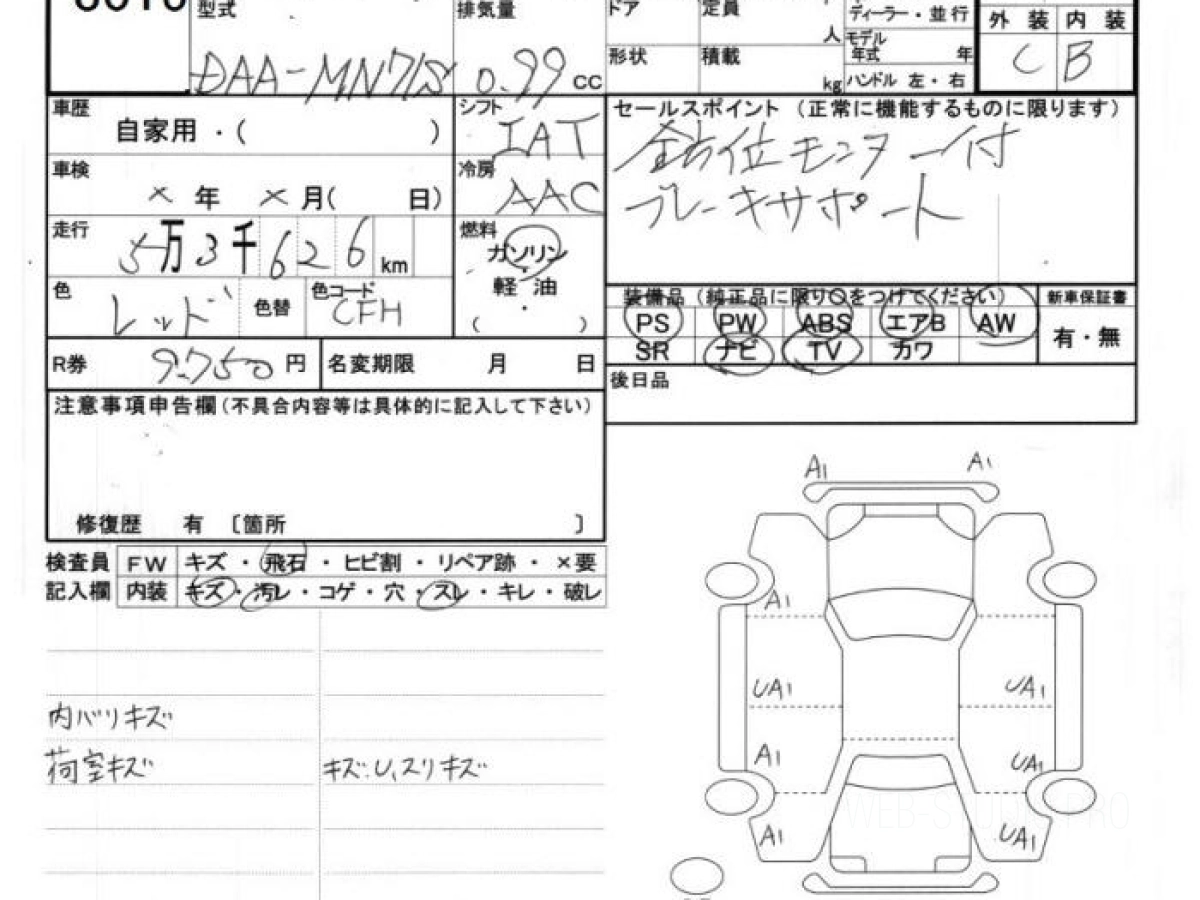 型式 排気量 ドア 定員 人 ディーラー・並行 外装 内装
DAA-MN71S 0.99 cc 形状 積載 kg モデル年式 年 C B
ハンドル 左・右
車歴 自家用・( ) シフト IAT
セールスポイント (正常に機能するものに限ります)
車検 × 年 × 月( 日) 冷房 AAC
全方位モニター付
ブレーキサポート
走行 5万3千626km 燃料 ガソリン
軽・油
・
( )
色 レッド 色替 色コード CFH
装備品 (純正品に限り○をつけてください) 新車保証書
PS PW ABS エアB AW 有・無
SR ナビ TV カワ
R券 9.750円 名変期限 月 日
後日品
注意事項申告欄(不具合内容等は具体的に記入して下さい)
修復歴 有 〔箇所 〕
検査員 FW キズ・飛石・ヒビ割・リペア跡・×要
記入欄 内装 キズ・汚レ・コゲ・穴・スレ・キレ・破レ
内バリキズ
荷室キズ キズ.U.スリキズ
A1 A1
A1
UA1 UA1
A1 UA1
A1 UA1
WEB-STUDIO.PRO